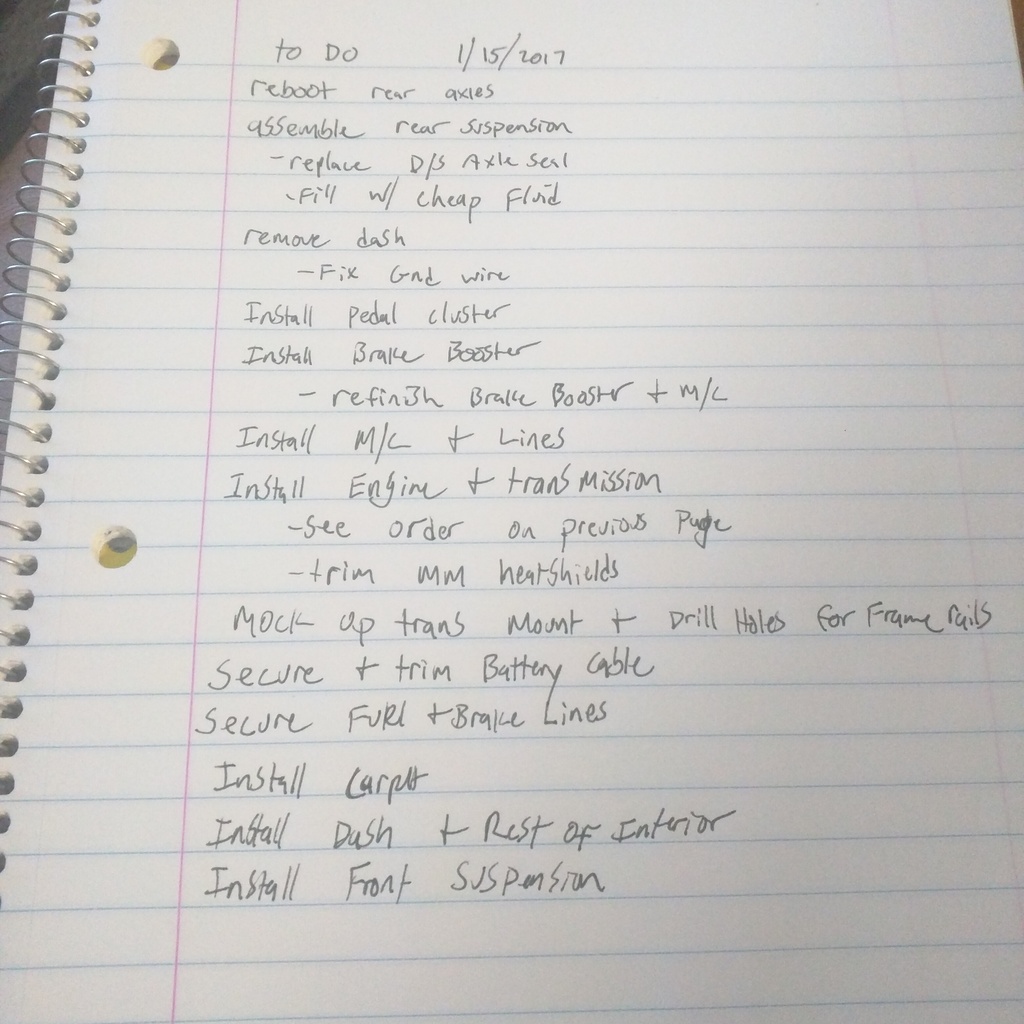 to DO 1/15/2017
reboot rear axles
assemble rear suspension
- replace D/S Axle seal
- Fill w/ cheap Fluid
remove dash
- Fix Gnd wire
Install pedal cluster
Install Brake Booster
- refinish Brake Booster + M/C
Install M/C + Lines
Install Engine + transmission
- see order on previous Page
- trim MM heatshields
Mock up trans Mount + Drill Holes for Frame rails
Secure + trim Battery Cable
Secure Fuel + Brake Lines
Install Carpet
Install Dash + Rest of Interior
Install Front Suspension